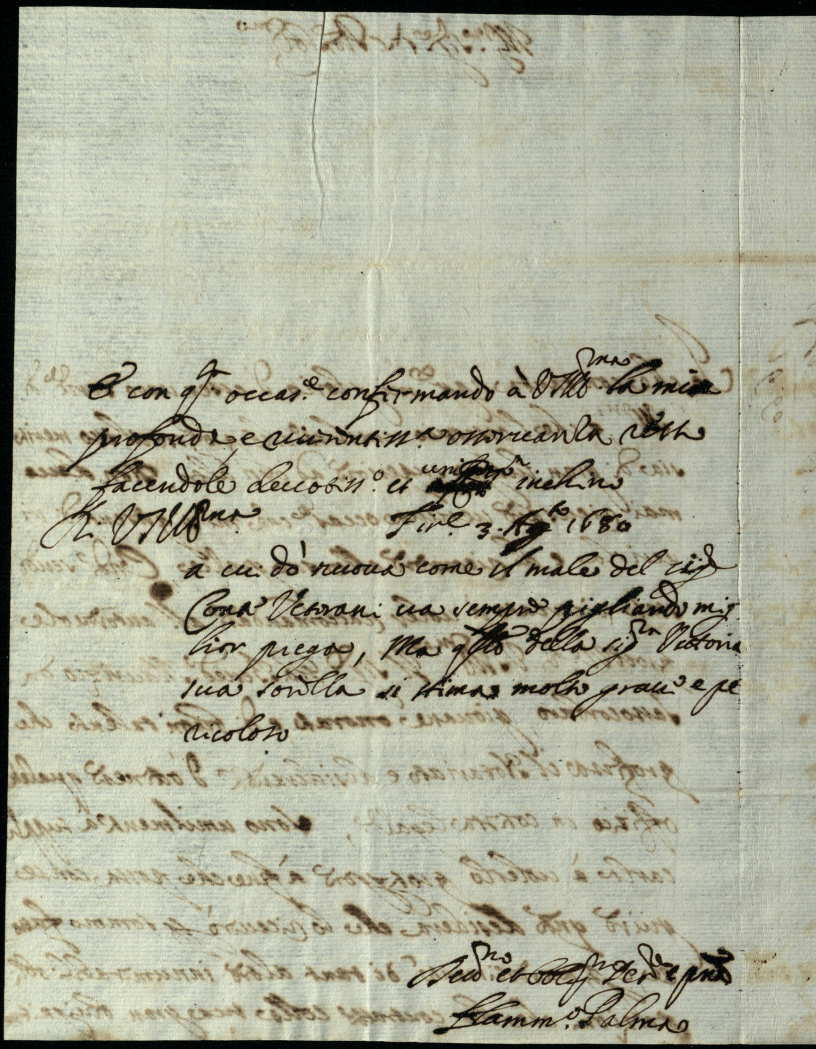 E con q.ta occas.e confirmando à V.S. Ill.ma la mia
profonda, e riverentiss.a osservanza resto
facendole devotiss.o et umiliss.o inchino
D. V.S. Ill.ma Fir.e 3. Ag.to 1680
a cui dò nuova come il male del sig.r
Conte Veterani va sempre pigliando mig
lior piega, Ma q.llo della sig.ra Vittoria
sua sorella si stima molto grave e pe
ricoloso
Dev.mo et Obblig.mo Ser.re
Flamm.o Palma